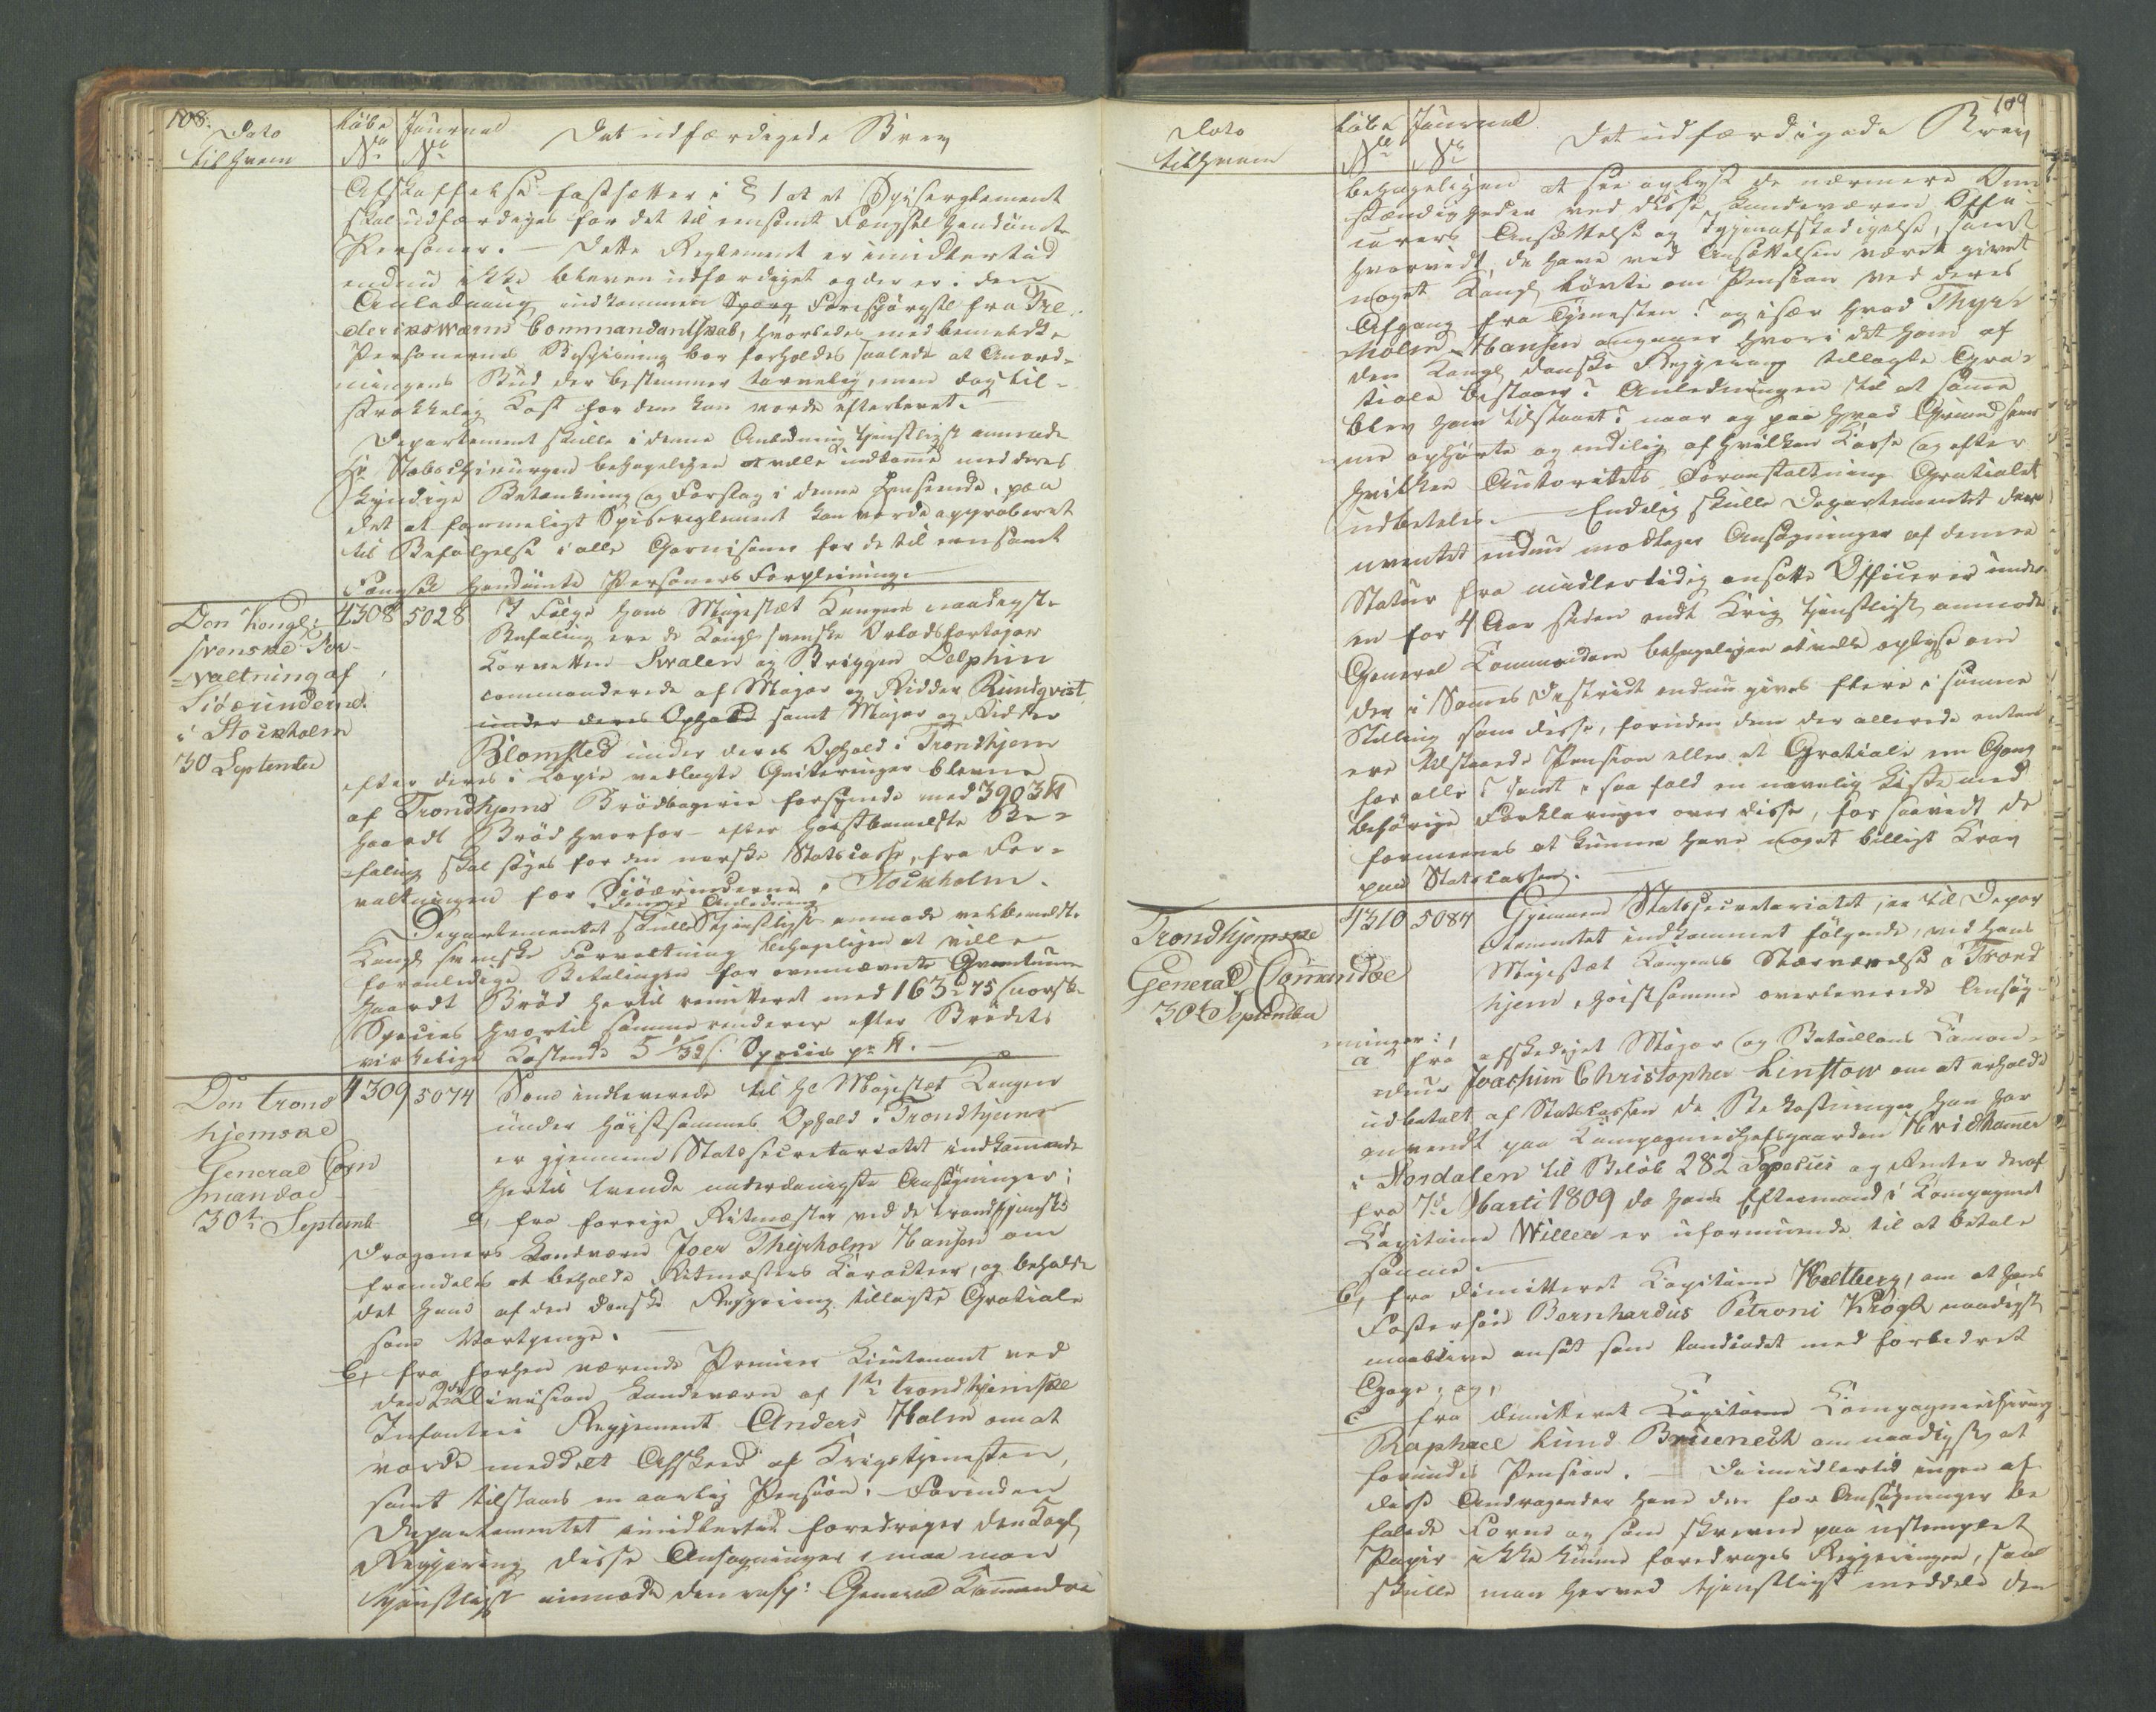 108.
Dato
til hvem
Løbe
No
Journal
No
Det udfærdigede Brev
Afskaffelse fastsætter i § 1 at et Spisereglement
skal udfærdiges for det til eensomt Fængsel hendømte
Personer. — Dette Reglement er imidlertiid
endnu ikke bleven udfærdiget og der er i den
Anledning indkommen Forespørgsel fra Fre
derikswærns Commandantskab, hvorledes med bemeldte
Personernes Bespisning bør forholdes saalede at Anord-
ningens Bud der bestemmer tarvelig, men dog til-
strækkelig Kost for dem kan vorde efterlevet.
Departement skulle i denne Anledning tjenstligst anmode
Hr Stabschirurgen behageligen at ville indkomme med deres
kyndige Betænkning og Forslag i denne Henseende, paa
det at formeligt Spisereglement kan vorde approberet
til Befølgelse i alle Garnisoner for de til eensomt
Fængsel hendømte Personers Forpleining.
Den Kongl:
svenske For-
valtning af
Siöærinderne
i Stockholm
30 September
4308
5028
I Følge Hans Majestæt Kongens naadigste
Befaling ere de Kongl svenske Orlogsfartøjer
Corvetten Svalen og Briggen Delphin
commanderede af Major og Ridder Rundqvist
under deres Ophold samt Major og Ridder
Blomsted under deres Ophold i Trondhjem
efter deres i Copie vedlagte Qviteringer blevne
af Trondhjems Brödbageri forsynede med 3903 ℔
haardt Bröd hvorfor efter Høistbemeldte Be-
faling skal søges for den norske Statscasse, fra For-
valtningen for Siöærinderne i Stockholm.
i denne Anledning
Departementet skulle tjenstligst anmode velbemeldte
Kongl svenske Forvaltning behageligen at ville
foranledige Betalingen for ovennævnte Qvantum
haardt Bröd hertil remitteret med 163 : 75 norske
Species hvortil samme renderer efter Brödets
virkelige Kostende 5 1/32 s. Species pr ℔. —
Den trond
hjemske
General Com
mandoe
30te Septemb
4309
5074
Som indleverede til Hs Majestæt Kongen
under Høistsammes Ophold i Trondhjem
er gjennem Statssecretariatet indkomne
hertil tvende underdanigste Ansøgninger;
a, fra forrige Ritmester ved de trondhjemske
Dragoners Landværn Joer Thyrholm Hansen om
fremdeles at beholde Ritmesters Caracteer, og beholde
det ham af den danske Regjering tillagte Gratiale
som Vartpenge. —
b, fra forhen værende Premier Lieutenant ved
den 2den Division Landeværn af 1te trondhjemske
Infanteri Regiement Anders Holm om at
vorde meddelt Afskeed af Krigstjenesten,
samt tilstaaes en aarlig Pension. Forinden
Departementet imidlertid foredrager den Kogl
Regjering disse Ansøgninger, maa man
tjenstligst anmode den resp: General Commandoe
109
Dato
til hvem
Løbe
No
Journal
No
Det udfærdigede Brev
behageligen at see oplyst de nærmere Om
stændigheder ved disse Landeværns Offi-
cerers Ansættelse og Tjenestafskedigelse, samt
hvorvidt, de have ved Ansættelsen været givet
noget Kongl Løvte om Pension ved deres
Afgang fra Tjenesten? og især hvad Thyr-
holm Hansen angaaer hvori det ham af
den Kongl danske Regjering tillagte Gra-
tiale bestaaer? Anledningen til at samme
blev ham tilstaaet? naar og paa hvad Grund sam
me ophørte og endelig af hvilken Casse og efter
hvilken Autoritets Foranstaltning Gratialet
udbetaltes. — Endelig skulle Departementet der
uventet endnu modtager Ansøgninger af denne
Natur fra midlertidig ansatte Officerer under
en for 4 Aar siden endt Krig tjenstligst anmode
General Commandoen behageligen at ville oplyse om
der i Sammes District endnu gives flere i samme
Stilling som disse, foruden dem der allerede enten
ere tilstaaede Pension eller et Gratiale een Gang
for alle? samt i saa fald en nøyelig Liste med
behørige Forklaringer over disse, for saavidt de
formenes at kunne have noget billigt Krav
paa Statscassen. —
Trondhjemske
General Commandoe
30te September
4310
5084
Gjennem Statssecretariatet, er til Depar
tementet indkommet følgende, ved Hans
Majestæt Kongens Nærværelse i Trond
hjem, høistsamme overleverede Ansøg-
ninger:
a fra afskediget Major og Bataillons Comman-
deur Joachim Christopher Linstow om at erholde
udbetalt af Statscassen de Bekostninger han har
anvendt paa Compagniechefsgaarden Hvidhamer
i Stordalen til Beløb 282 Species og Renter deraf
fra 7de Marti 1809 da hans Eftermand i Compagniet
Capitaine Willer er uformuende til at betale
samme. —
b, fra dimitteret Capitaine Holtberg, om at hans
Fostersøn Bernhardus Petroni Krogh naadigst
maa blive ansat som Landcadet med forbedret
Gage; og,
c fra dimitteret Capitaine Compagniechirurg
Raphael Lund Bruenech om naadigst at
forundes Pension. — Da imidlertid ingen af
disse Andragender have den for Ansøgninger be
falede Form og som skrevne paa ustemplet
Papir ikke kunne foredrages Regjeringen, saa
skulle man herved tjenstligst meddele den